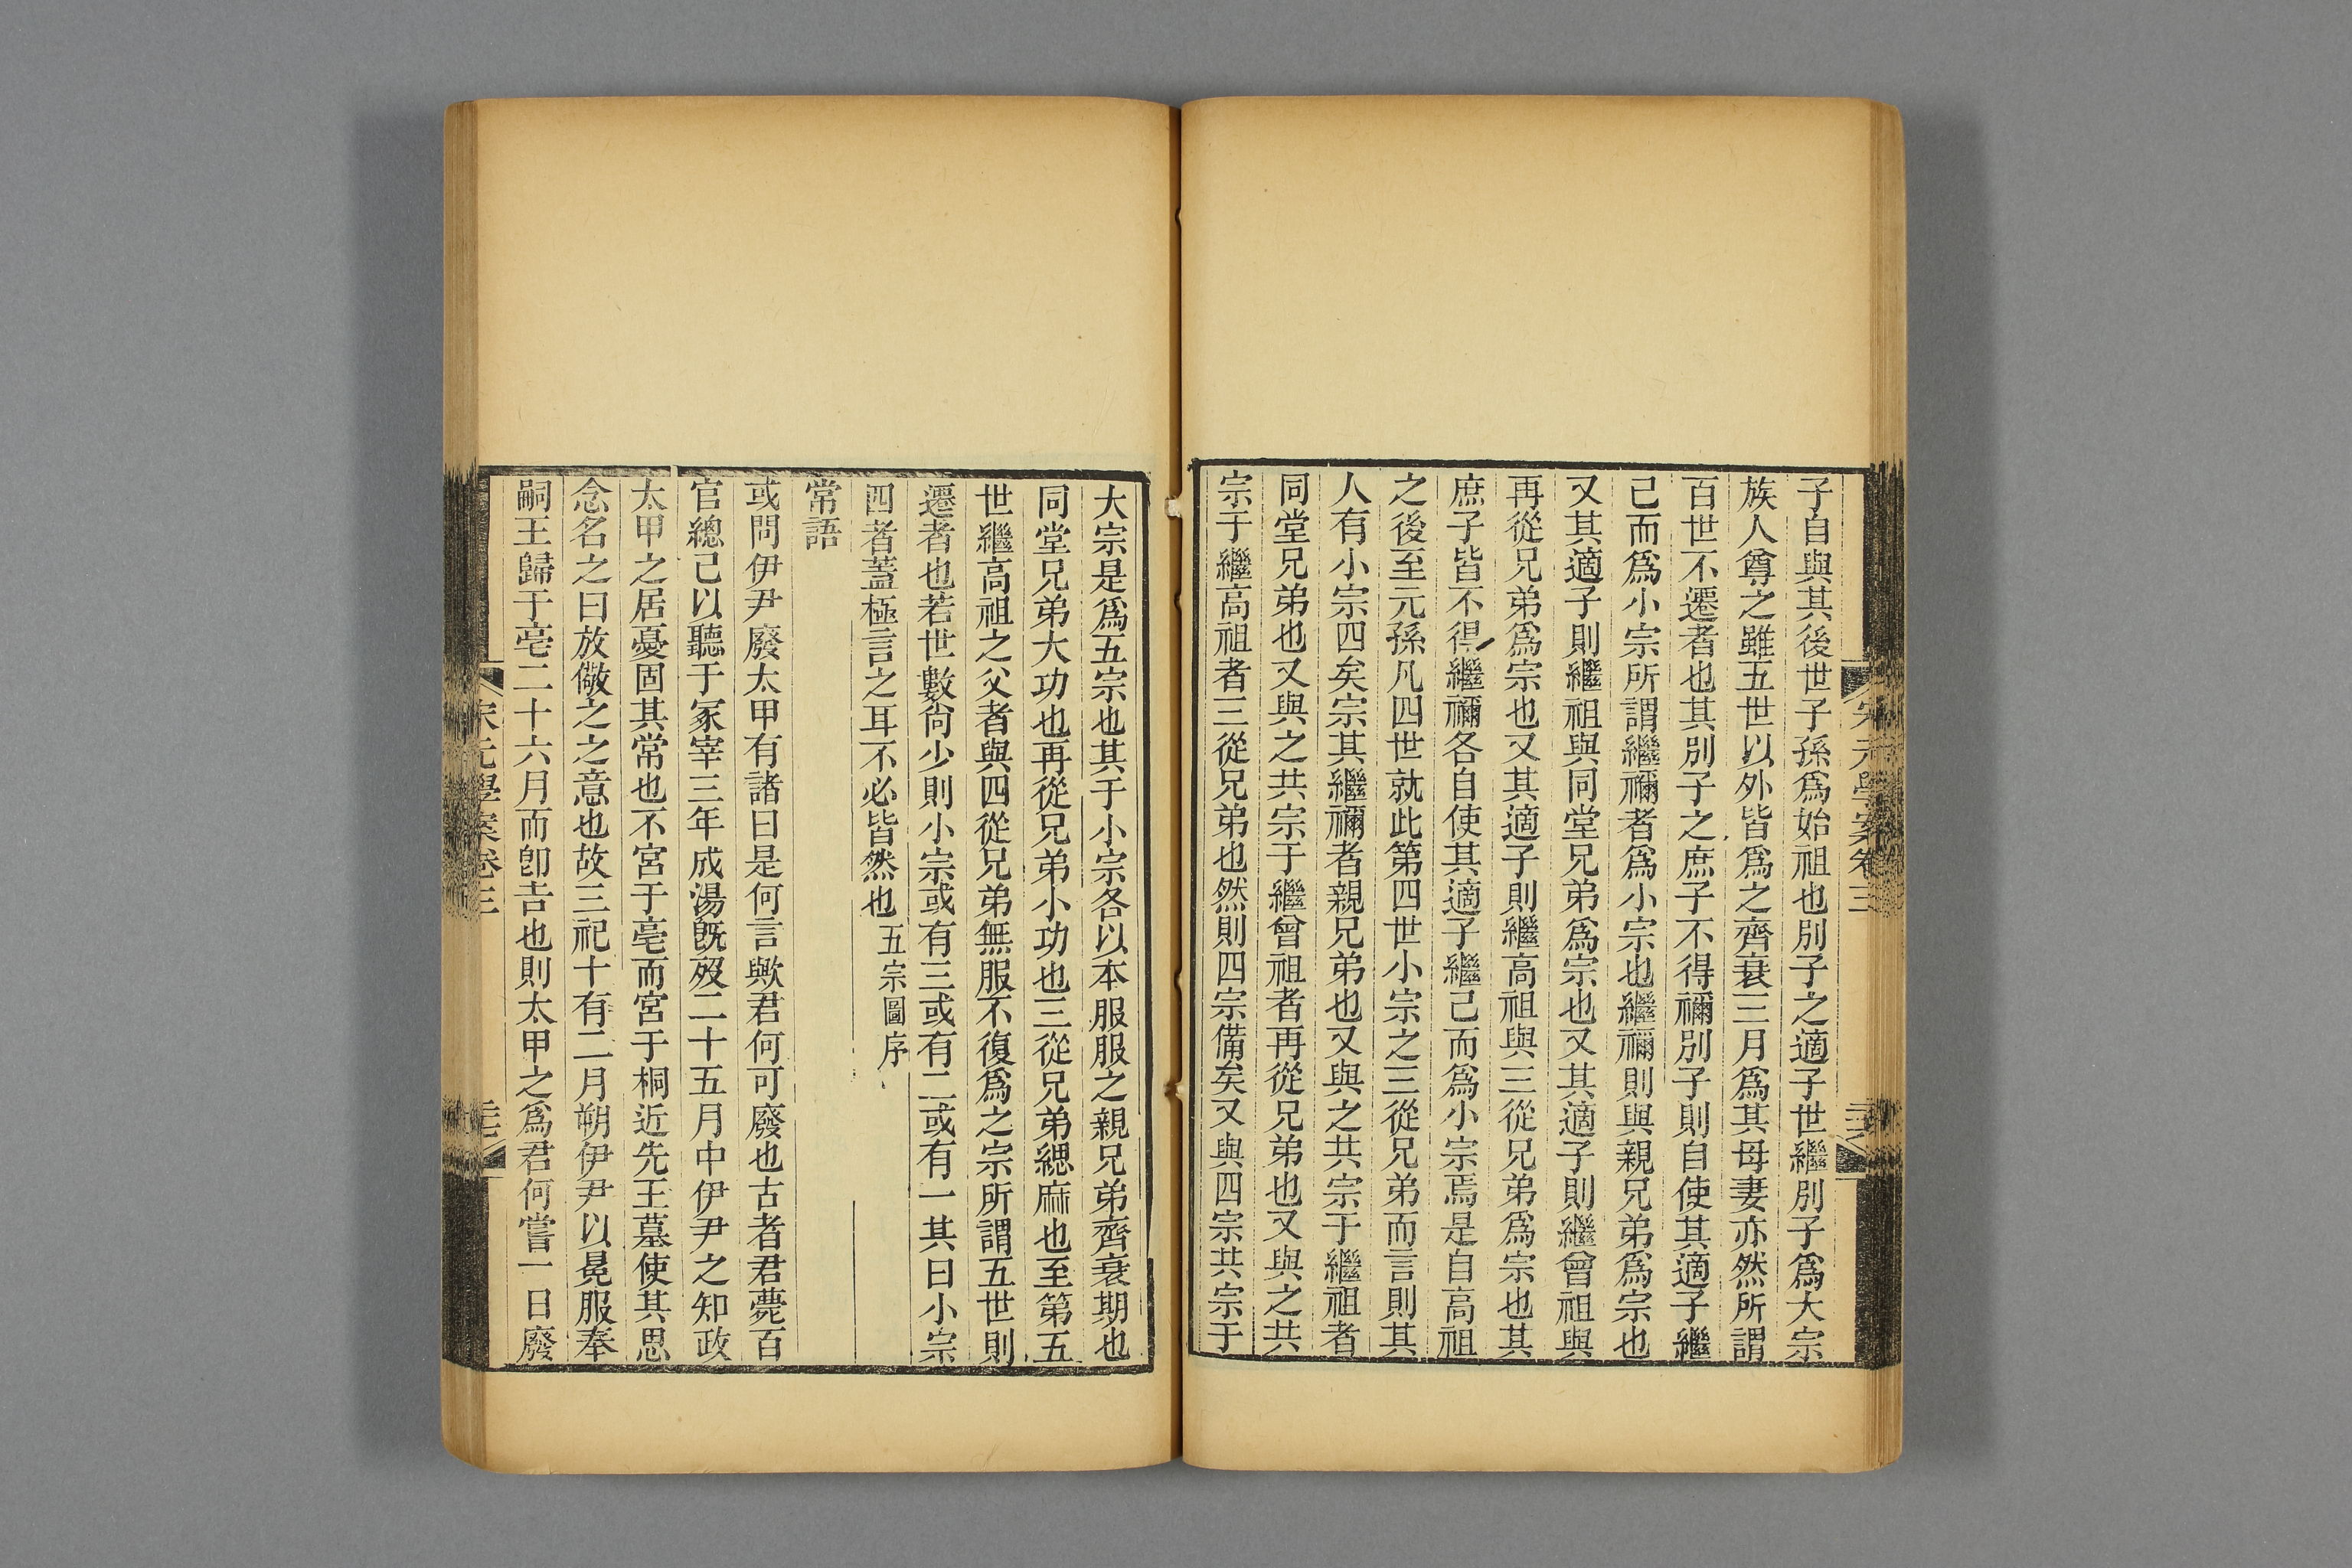 宋元學案卷三
子自與其後世子孫爲始祖也別子之適子世繼別子爲大宗
族人尊之雖五世以外皆爲之齊衰三月爲其母妻亦然所謂
百世不遷者也其別子之庶子不得禰別子則自使其適子繼
己而爲小宗所謂繼禰者爲小宗也繼禰則與親兄弟爲宗也
又其適子則繼祖與同堂兄弟爲宗也又其適子則繼曾祖與
再從兄弟爲宗也又其適子則繼高祖與三從兄弟爲宗也其
庶子皆不得繼禰各自使其適子繼己而爲小宗焉是自高祖
之後至元孫凡四世就此第四世小宗之三從兄弟而言則其
人有小宗四矣宗其繼禰者親兄弟也又與之共宗于繼祖者
同堂兄弟也又與之共宗于繼曾祖者再從兄弟也又與之共
宗于繼高祖者三從兄弟也然則四宗備矣又與四宗共宗于
大宗是爲五宗也其于小宗各以本服服之親兄弟齊衰期也
同堂兄弟大功也再從兄弟小功也三從兄弟緦麻也至第五
世繼高祖之父者與四從兄弟無服不復爲之宗所謂五世則
遷者也若世數尙少則小宗或有三或有二或有一其曰小宗
四者蓋極言之耳不必皆然也五宗圖序
常語
或問伊尹廢太甲有諸曰是何言歟君何可廢也古者君薨百
官總己以聽于冢宰三年成湯旣歿二十五月中伊尹之知政
太甲之居憂固其常也不宮于亳而宮于桐近先王墓使其思
念名之曰放儆之之意也故三祀十有二月朔伊尹以冕服奉
嗣王歸于亳二十六月而卽吉也則太甲之爲君何嘗一日廢
宋元學案卷三